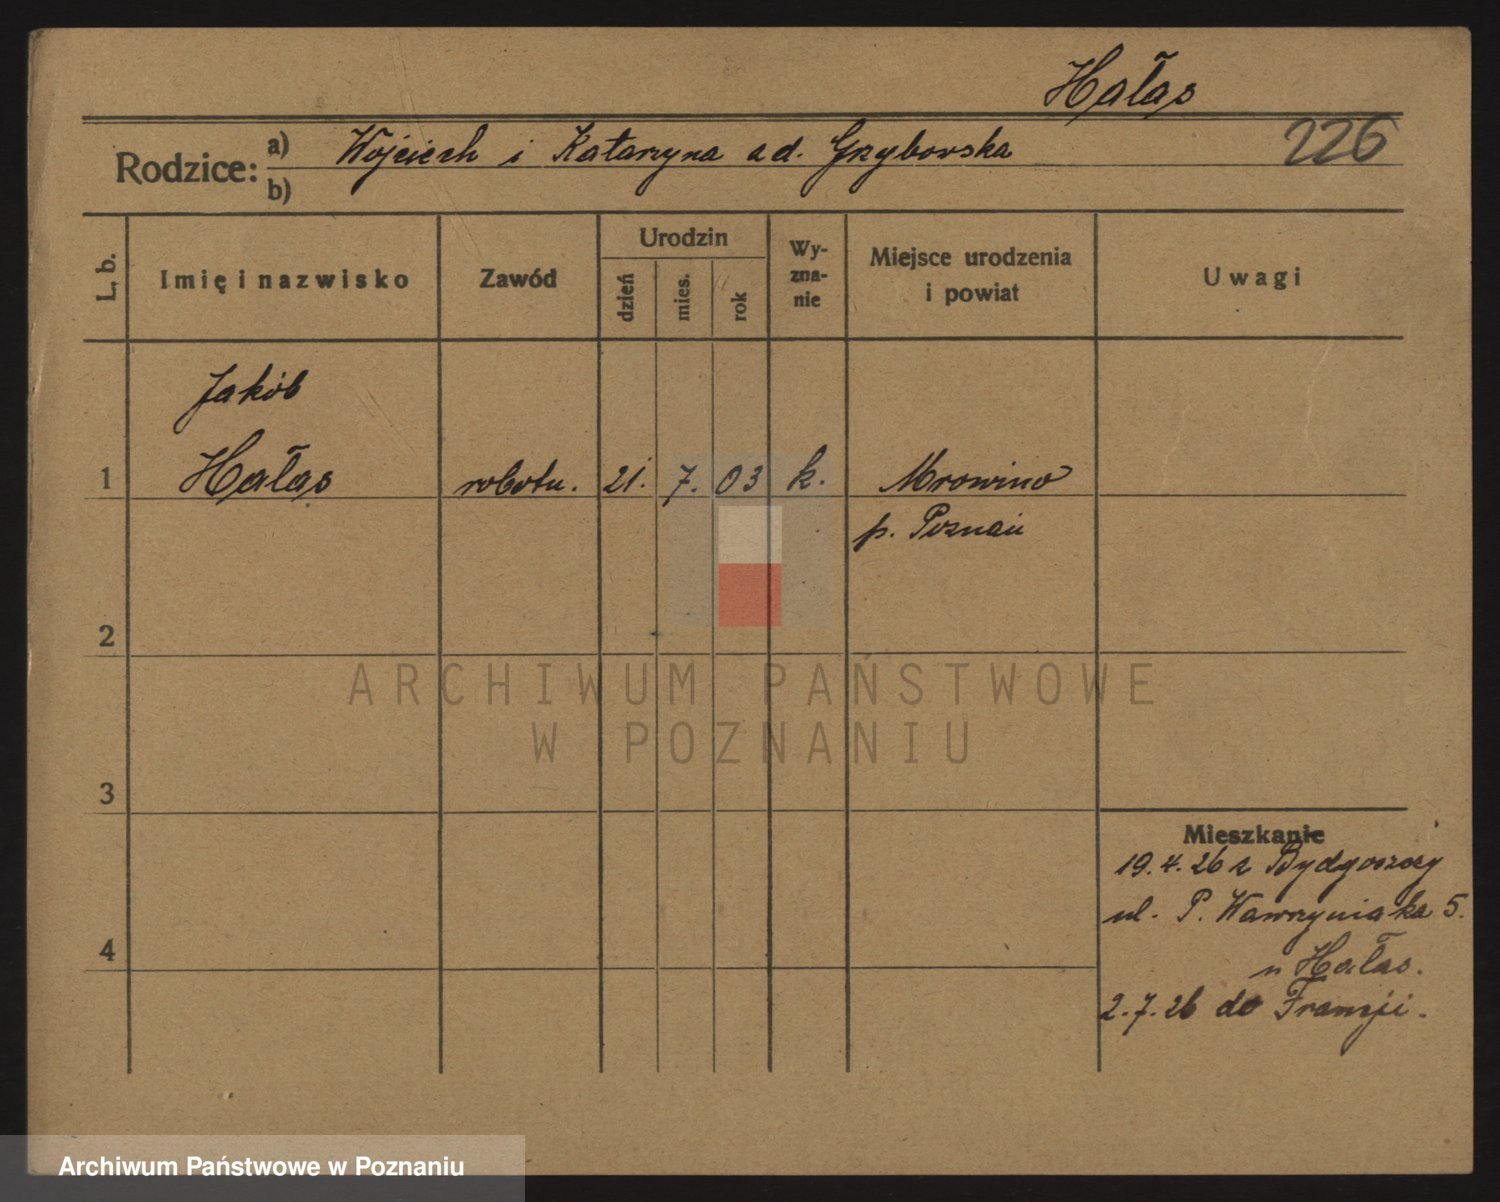 Hałas
226
Rodzice: a) Wojciech i Katarzyna a d. Grzybowska
b)
L. b. Imię i nazwisko Zawód Urodzin dzień mies. rok Wy-zna-nie Miejsce urodzenia i powiat Uwagi
Jakób
1 Hałas robotn. 21. 7. 03 k. Mrowino
p. Poznań
2
3
4
Mieszkanie
19.4.26 z Bydgoszczy
ul. P. Wawrzyniaka 5.
u Hałas.
2.7.26 do Francji.
ARCHIWUM PAŃSTWOWE
W POZNANIU
Archiwum Państwowe w Poznaniu